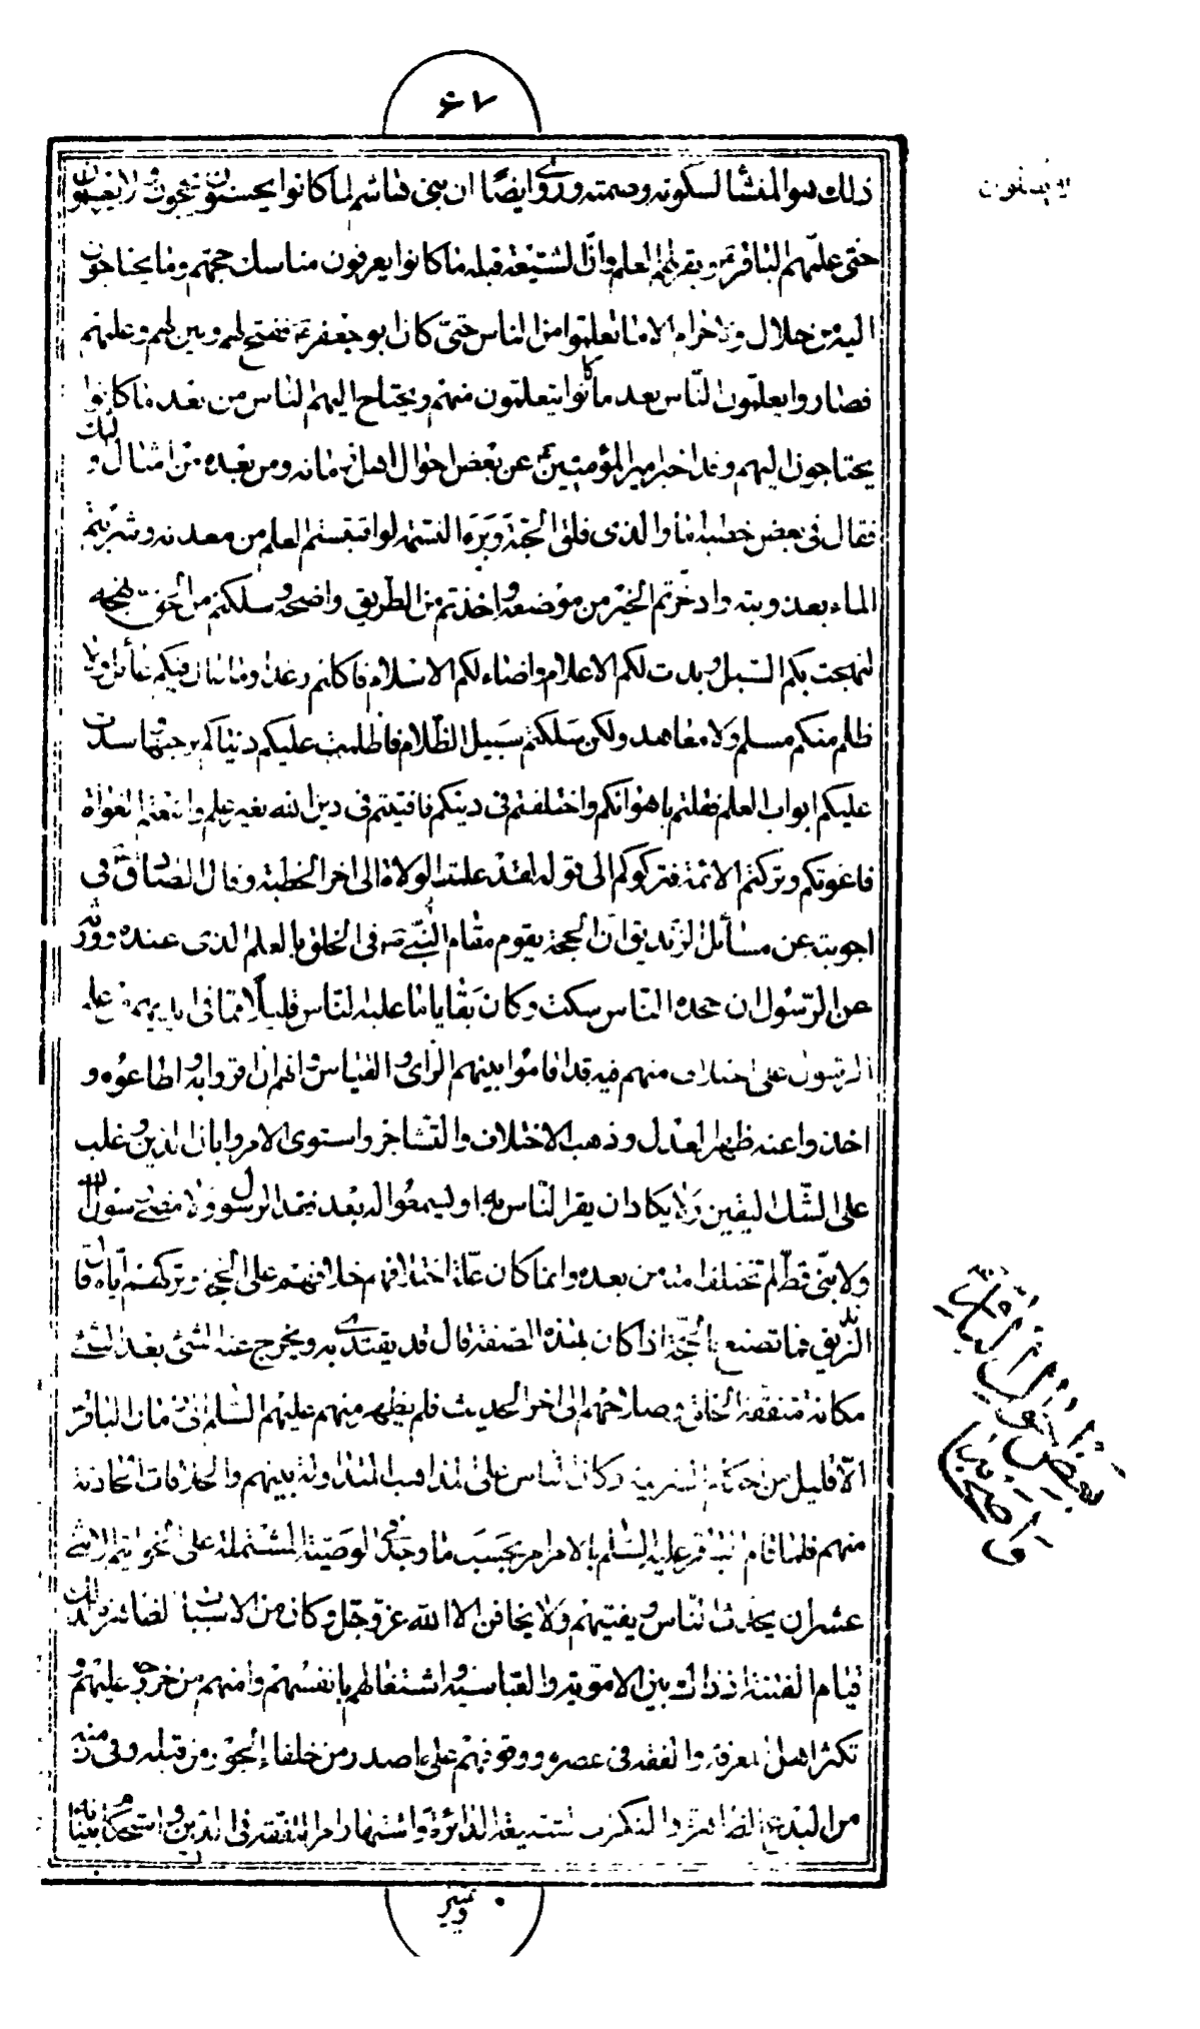 ۶۷
ذلك هو المنشأ لسكوته وصمته وروى ايضًا ان بنى هاشم لما كانوا يحسنون يحجون ولا يفقهون
حتى علمهم الباقر ع وبقر لهم العلم وان الشيعة قبله ما كانوا يعرفون مناسك حجهم وما يحتاجون
اليه من حلال ولا حرام الا ما تعلموا من الناس حتى كان ابو جعفر ع ففتح لهم وبين لهم وعلمهم
فصاروا يعلمون الناس بعد ما كانوا يتعلمون منهم ويحتاج اليهم الناس من بعد ما كانوا
يحتاجون اليهم وقد اخبر امير المؤمنين ع عن بعض احوال اهل زمانه ومن بعده من امثال اولئك
فقال فى بعض خطبه اما والذى فلق الحبة وبرء النسمة لو اقتبستم العلم من معدنه وشربتم
الماء بعذوبته وادخرتم الخير من موضعه واخذتم من الطريق واضحه وسلكتم من الحق نهجه
لنهجت بكم السبل وبدت لكم الاعلام واضاء لكم الاسلام فاكلتم رغدا وما عال فيكم عائل ولا
ظلم منكم مسلم ولا معاهد ولكن سلكتم سبيل الظلام فاظلمت عليكم دنياكم برحبها وسدت
عليكم ابواب العلم فقلتم باهوائكم واختلفتم فى دينكم فافتيتم فى دين الله بغير علم واتبعتم الغواة
فاغوتكم وتركتم الائمة فتركوكم الى قوله لقد علمت الولاة الى اخر الخطبة وقال الصادق ع فى
اجوبته عن مسائل الزنديق ان الحجة يقوم مقام النبى ص فى الخلق بالعلم الذى عنده وورثه
عن الرسول ان جحده الناس سكت وكان بقايا ما عليه الناس قليلًا مما فى ايديهم من علم
الرسول على اختلاف منهم فيه قد اقاموا بينهم الراى والقياس وانهم ان اقروا به واطاعوه و
اخذوا عنه ظهر العدل وذهب الاختلاف والتشاجر واستوى الامر وابان الدين وغلب
على الشك اليقين ولا يكاد ان يقر الناس به او ليسمعوا له بعد فقد الرسول وما مضى رسول
ولا نبى قط لم تختلف امته من بعده وانما كان علة اختلافهم خلافهم على الحجة وتركهم اياه قال
الزنديق فما تصنع بالحجة اذا كان بهذه الصفة قال قد يقتدى به ويخرج عنه الشئ بعد الشئ
مكانه منفعة الخلق وصلاحهم الى اخر الحديث فلم يظهر منهم عليهم السلم الى زمان الباقر
الا قليل من وكان الناس على المذاهب المتداولة بينهم والحادثة
منهم فلما قام الباقر عليه السلم بالامر امر بحسب ما وجد فى الوصية المشتملة على الخواتيم الاثنى
عشر ان يحدث الناس ويفتيهم ولا يخافن الا الله عز وجل وكان من الاسباب لذلك
قيام الفتنة اذ ذاك بين الاموية والعباسية واشتغالهم بانفسهم وامنهم من خروجه عليهم
تكثر اهل المعرفة والفقه فى عصره ووقوفهم على ما صدر من خلفاء الجور من قبله وفى زمنه
من البدع واشتهار امر التفقه فى الدين واستحكام بنيانه
وتبين
بعض احوال الباقر
واصحابه